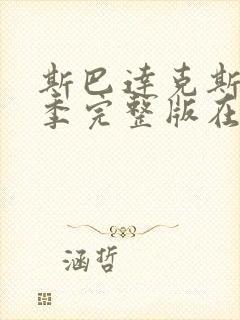 斯巴达克斯
季完整版在
涵哲